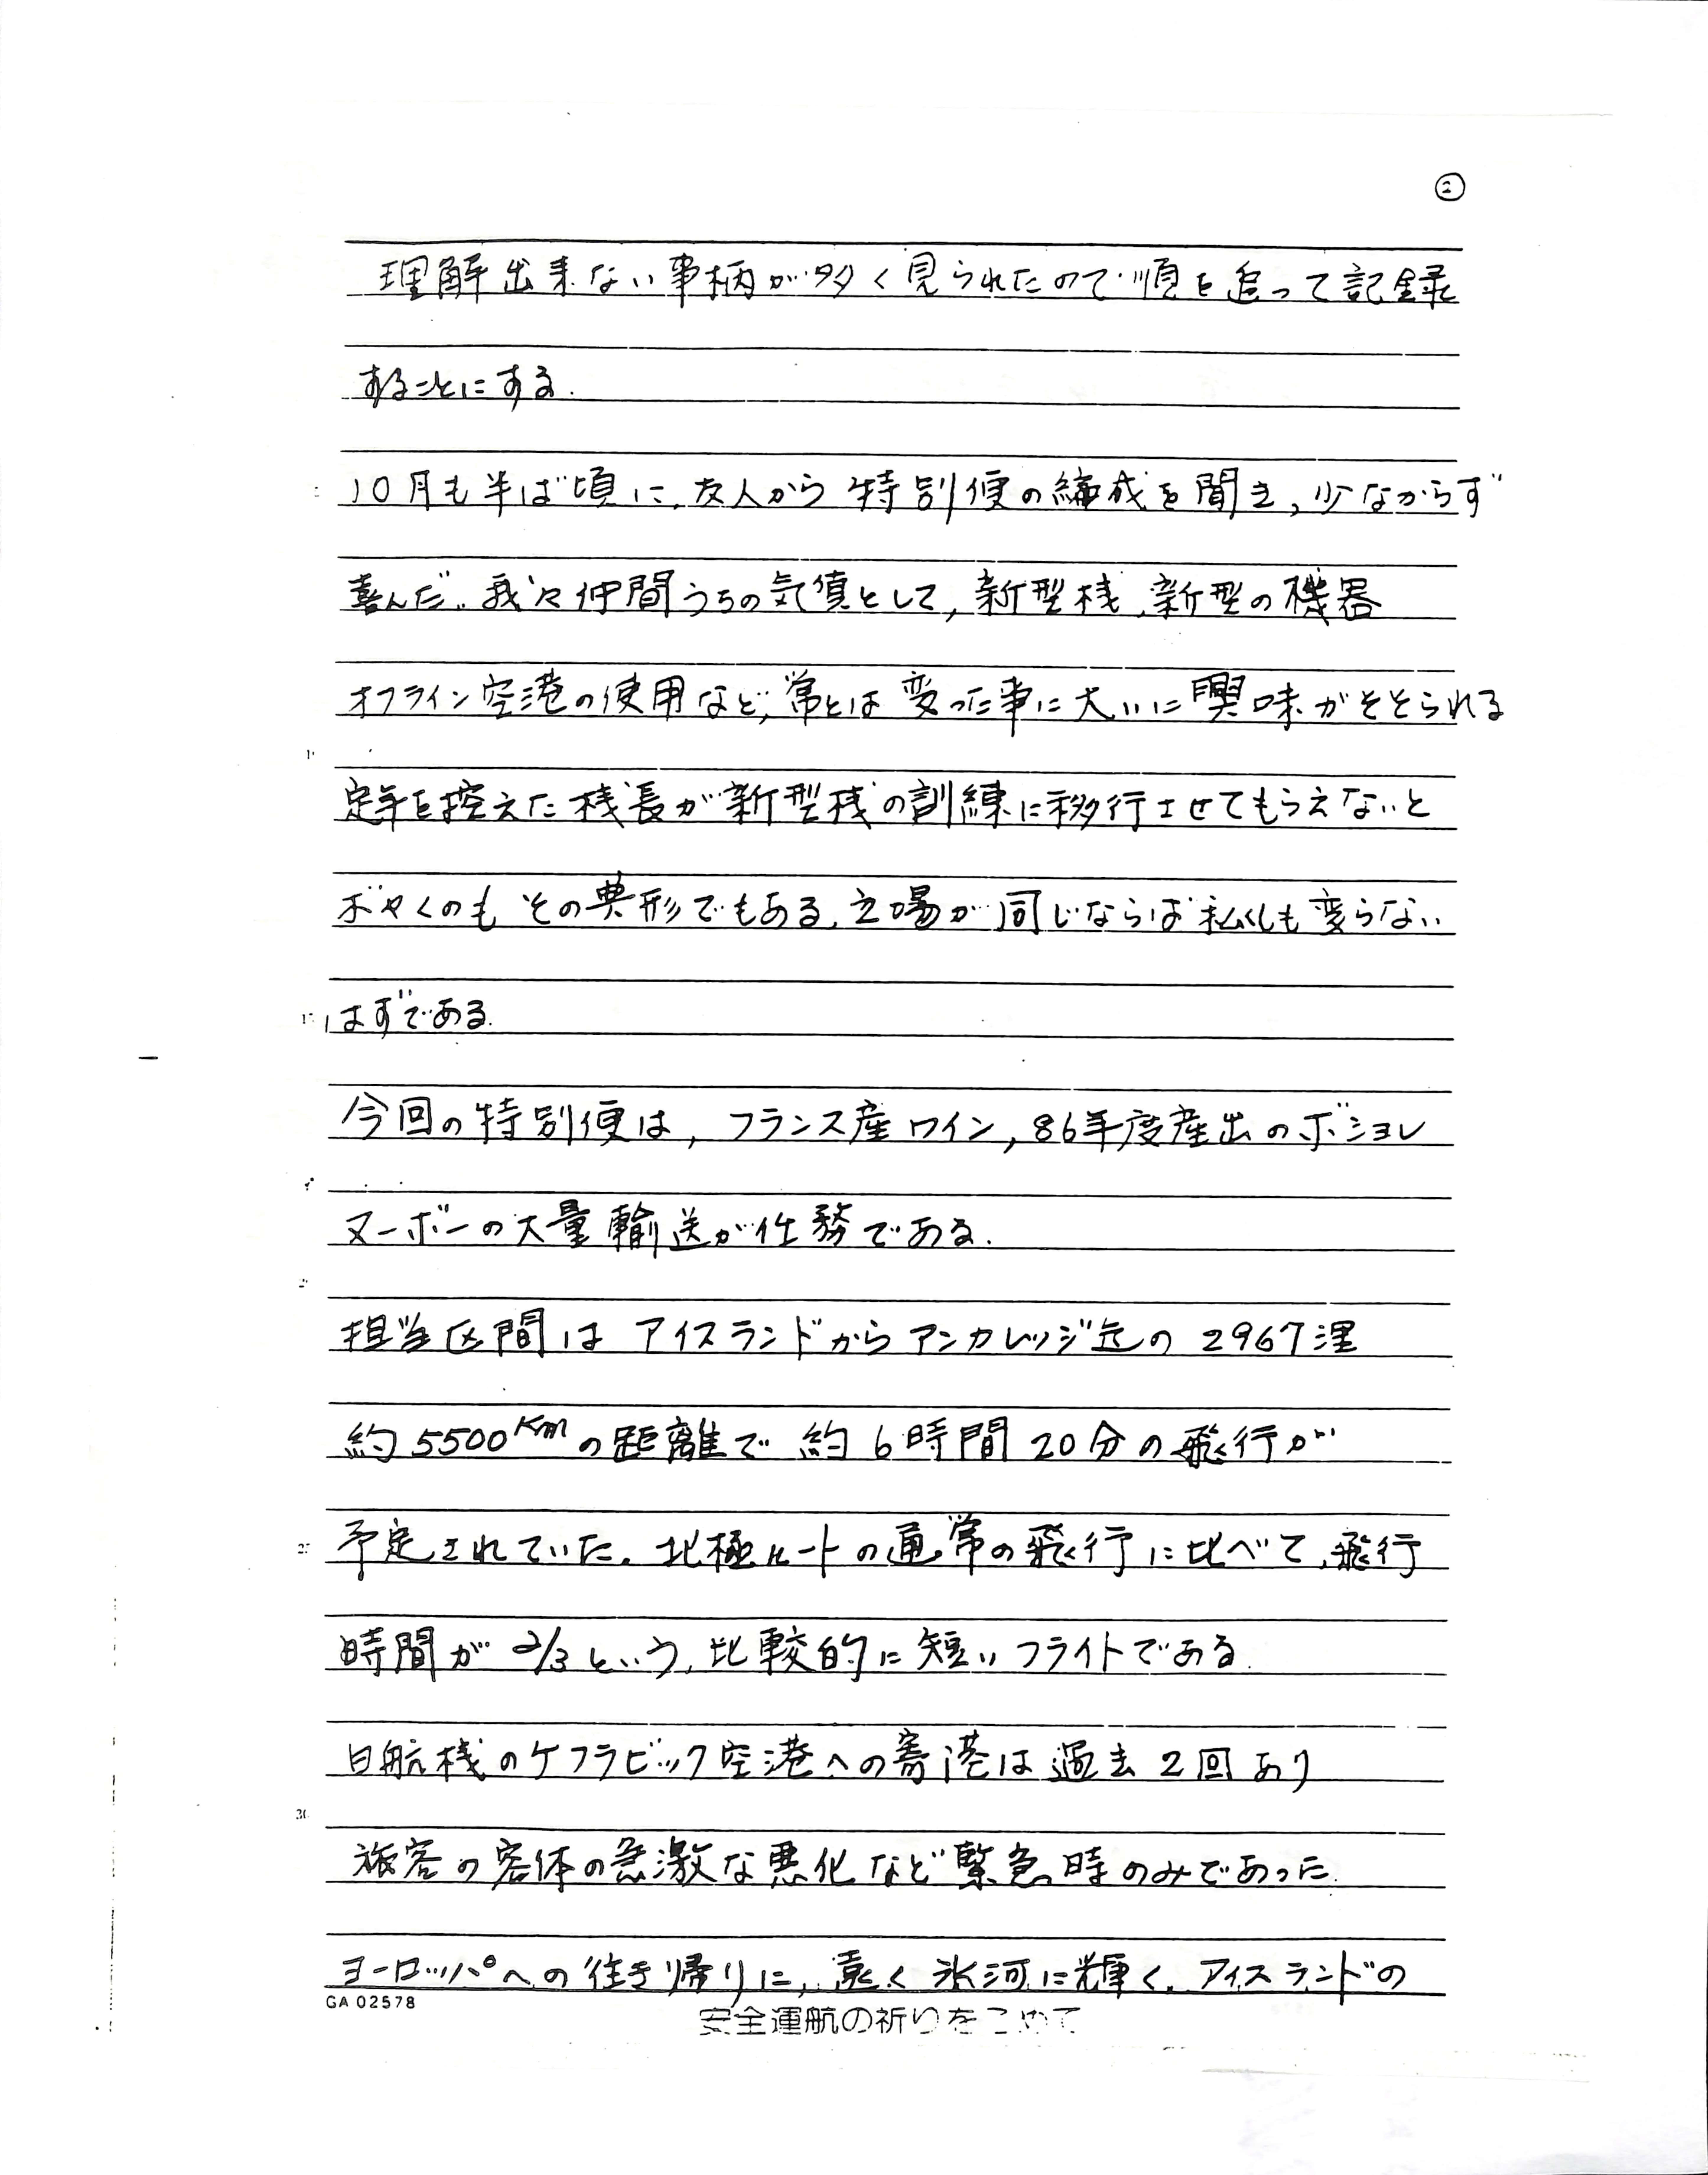 ②
理解出来ない事柄が多く見られたので順を追って記録
することにする.
10月も半ば頃に、友人から特別便の編成を聞き, 少なからず
喜んだ. 我々仲間うちの気質として, 新型機、新型の機器
オフライン空港の使用など, 常とは変った事に大いに興味がそそられる
定年を控えた機長が新型機の訓練に移行させてもらえないと
ボヤくのもその典形でもある. 立場が同じならば私くしも変らない
はずである.
今回の特別便は, フランス産ワイン, 86年度産出のボジョレ
ヌーボーの大量輸送が任務である.
担当区間はアイスランドからアンカレッジ迄の2967浬
約5500Kmの距離で約6時間20分の飛行が
予定されていた. 北極ルートの通常の飛行に比べて、飛行
時間が2/3という、比較的に短いフライトである.
日航機のケフラビック空港への寄港は過去2回あり
旅客の容体の急激な悪化など緊急時のみであった.
ヨーロッパへの往き帰りに, 遠く氷河に輝く、アイスランドの
GA 02578
安全運航の祈りをこめて